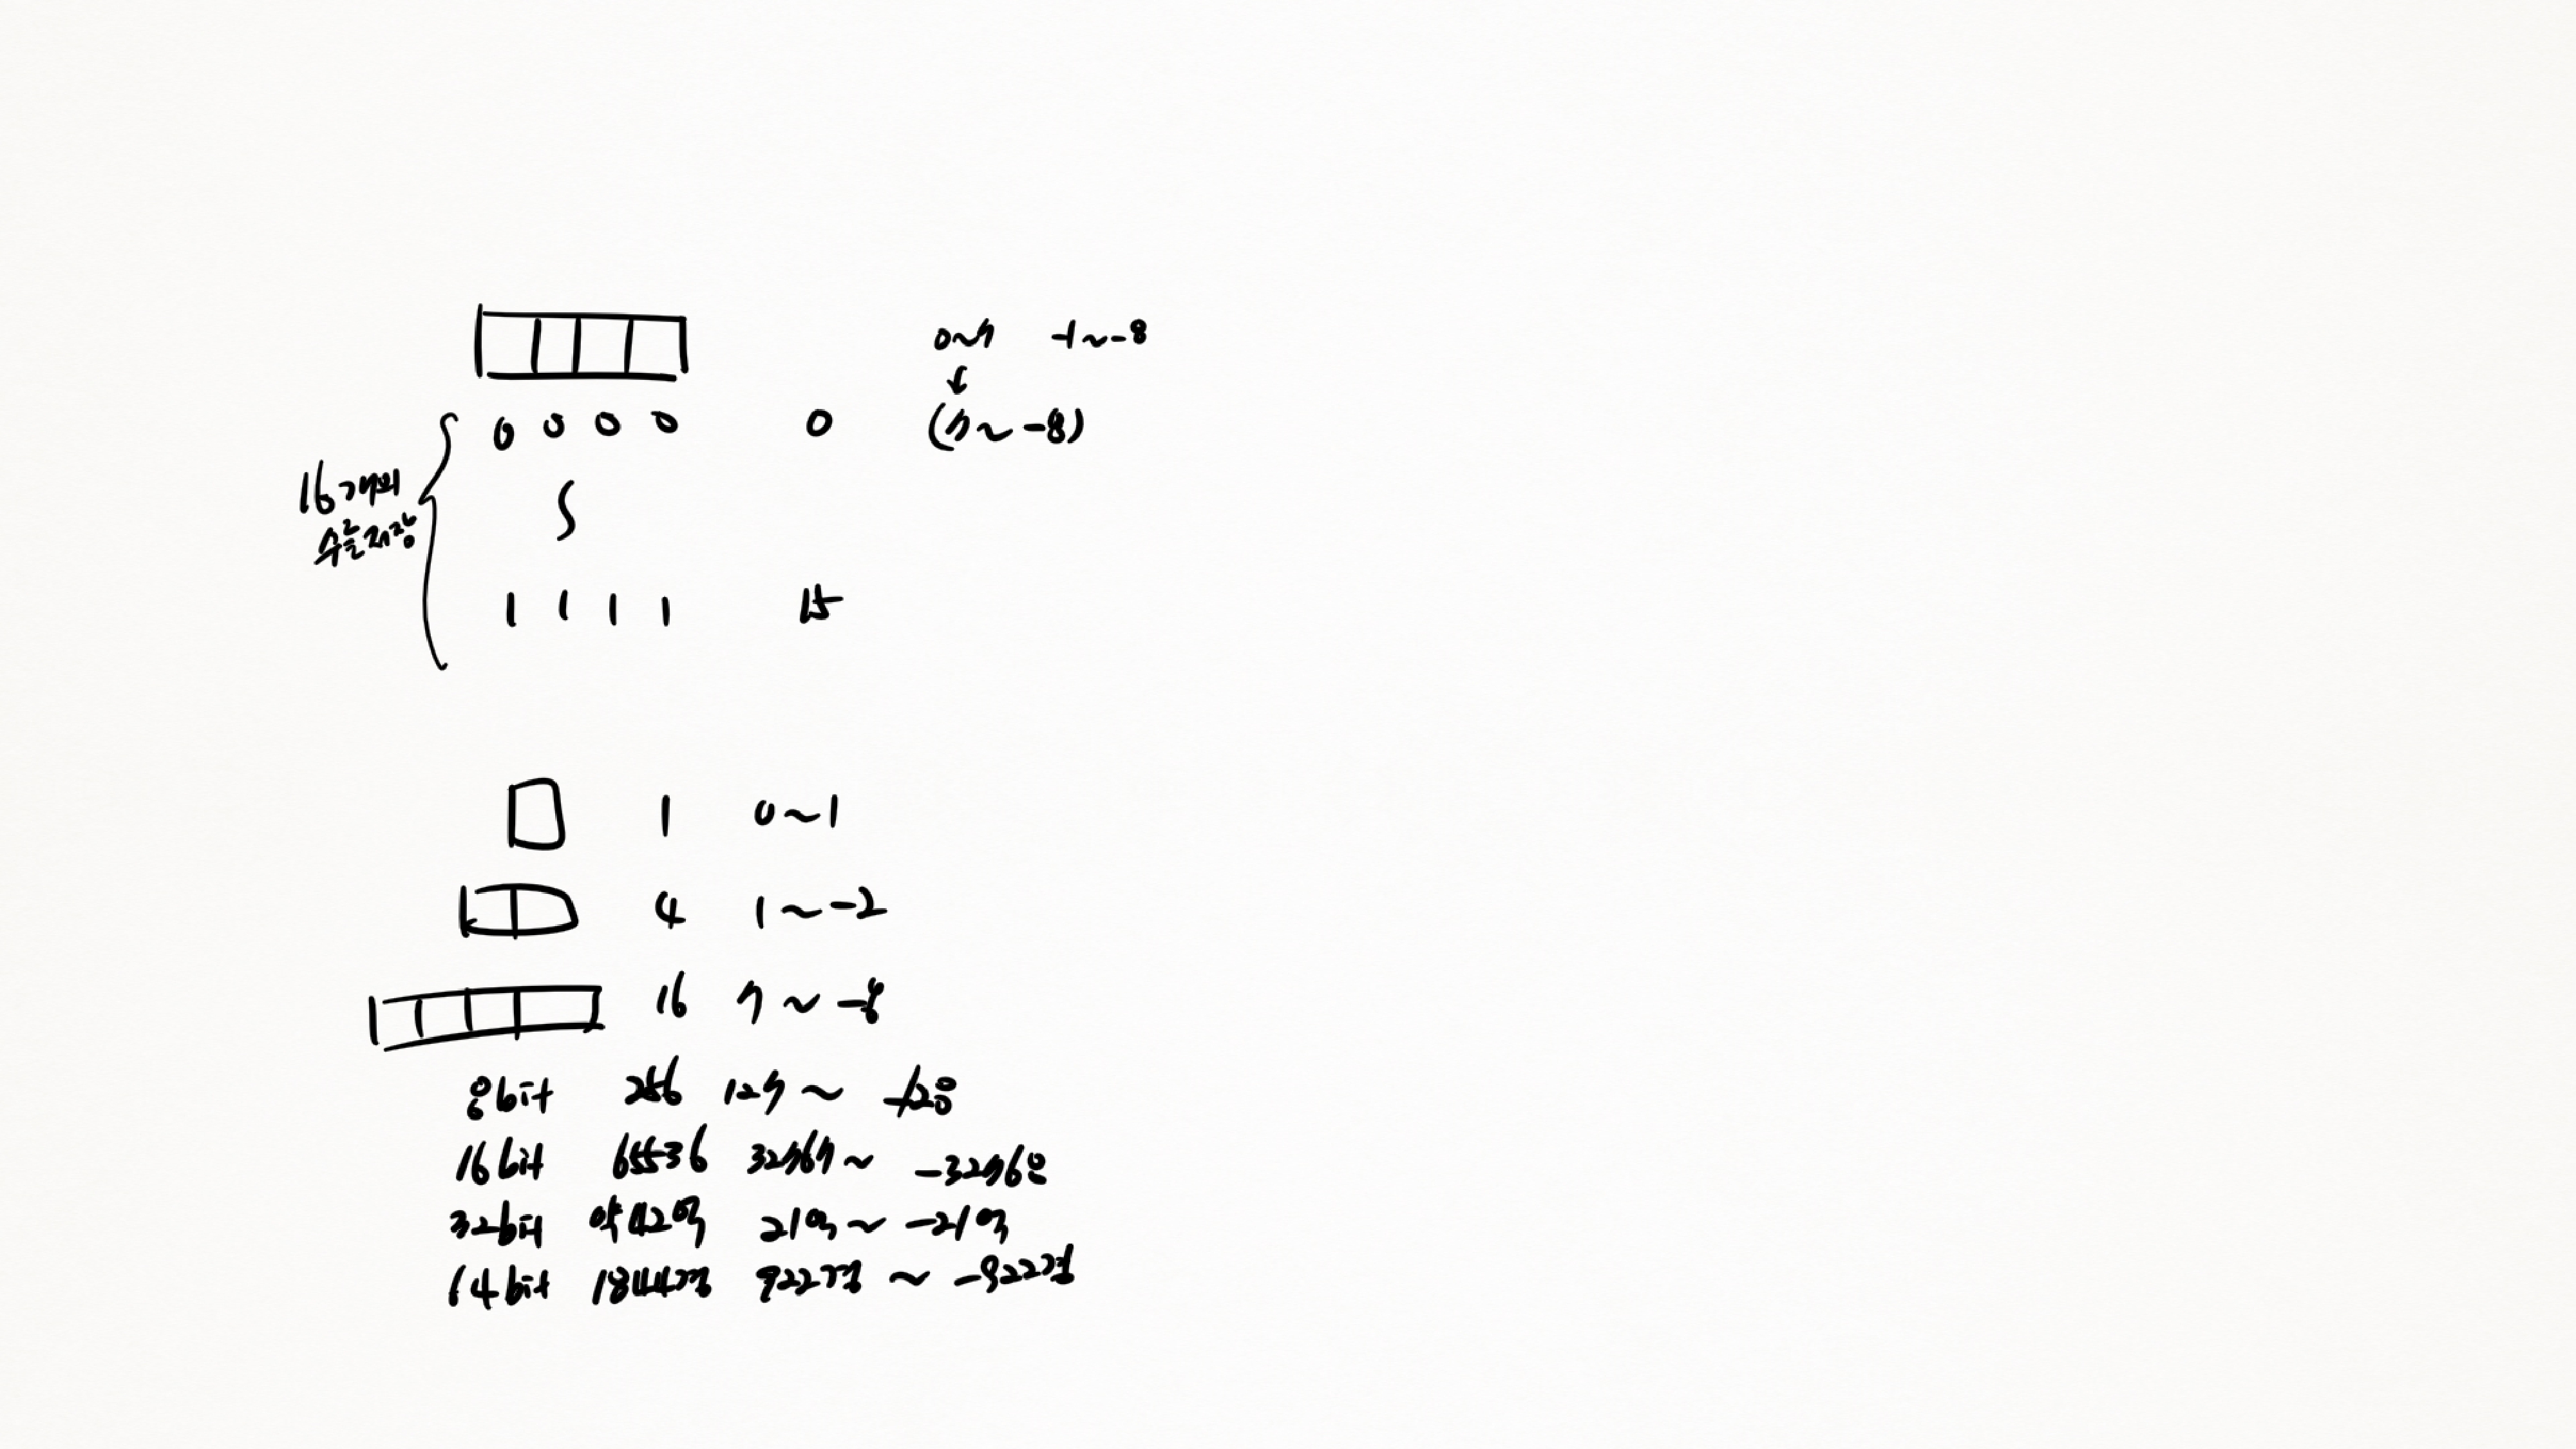 0~7 -1~-8
0 0 0 0 0 (7~-8)
16개의
수를 저장
1 1 1 1 15
1 0~1
4 1~-2
16 7~-8
8bit 256 127~ -128
16bit 65536 32767~ -32768
32bit 약42억 21억~ -21억
64bit 1844경 922경 ~ -922경